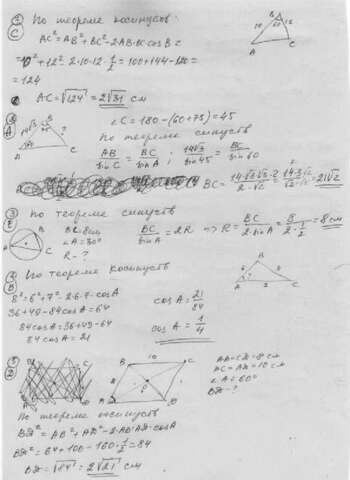 ① По теореме косинусов:
C
AC² = AB² + BC² - 2·AB·BC cosB =
= 10² + 12² · 2·10·12·1/2 = 100 + 144 - 120 =
= 124
AC = √124 = 2√31 см
B
10 60° 12
A C
②
A
∠C = 180 - (60 + 75) = 45
По теореме синусов
AB/sin C = BC/sin A ; 14√3/sin 45 = BC/sin 60
BC = 14√3·√3·2/2·√2 = 14·3·√2/√2·√2 = 21√2
B
14√3 ?
A C
③ По теореме синусов
B
BC = 8 см
∠A = 30°
R - ?
BC/sin A = 2R => R = BC/2·sin A = 8/2·1/2 = 8 см
A C
По теореме косинусов
B
8² = 6² + 7² - 2·6·7·cosA
36 + 49 - 84cosA = 64
84 cosA = 36 + 49 - 64
84 cosA = 21
cos A = 21/84
cos A = 1/4
B
A C
⑤
2
B 10 C
A
AB = CD = 8 см
BC = AD = 10 см
∠A = 60°
BD - ?
По теореме косинусов
BD² = AB² + AD² - 2·AB·AD·cosA
BD² = 64 + 100 - 160·1/2 = 84
BD = √84 = 2√21 см